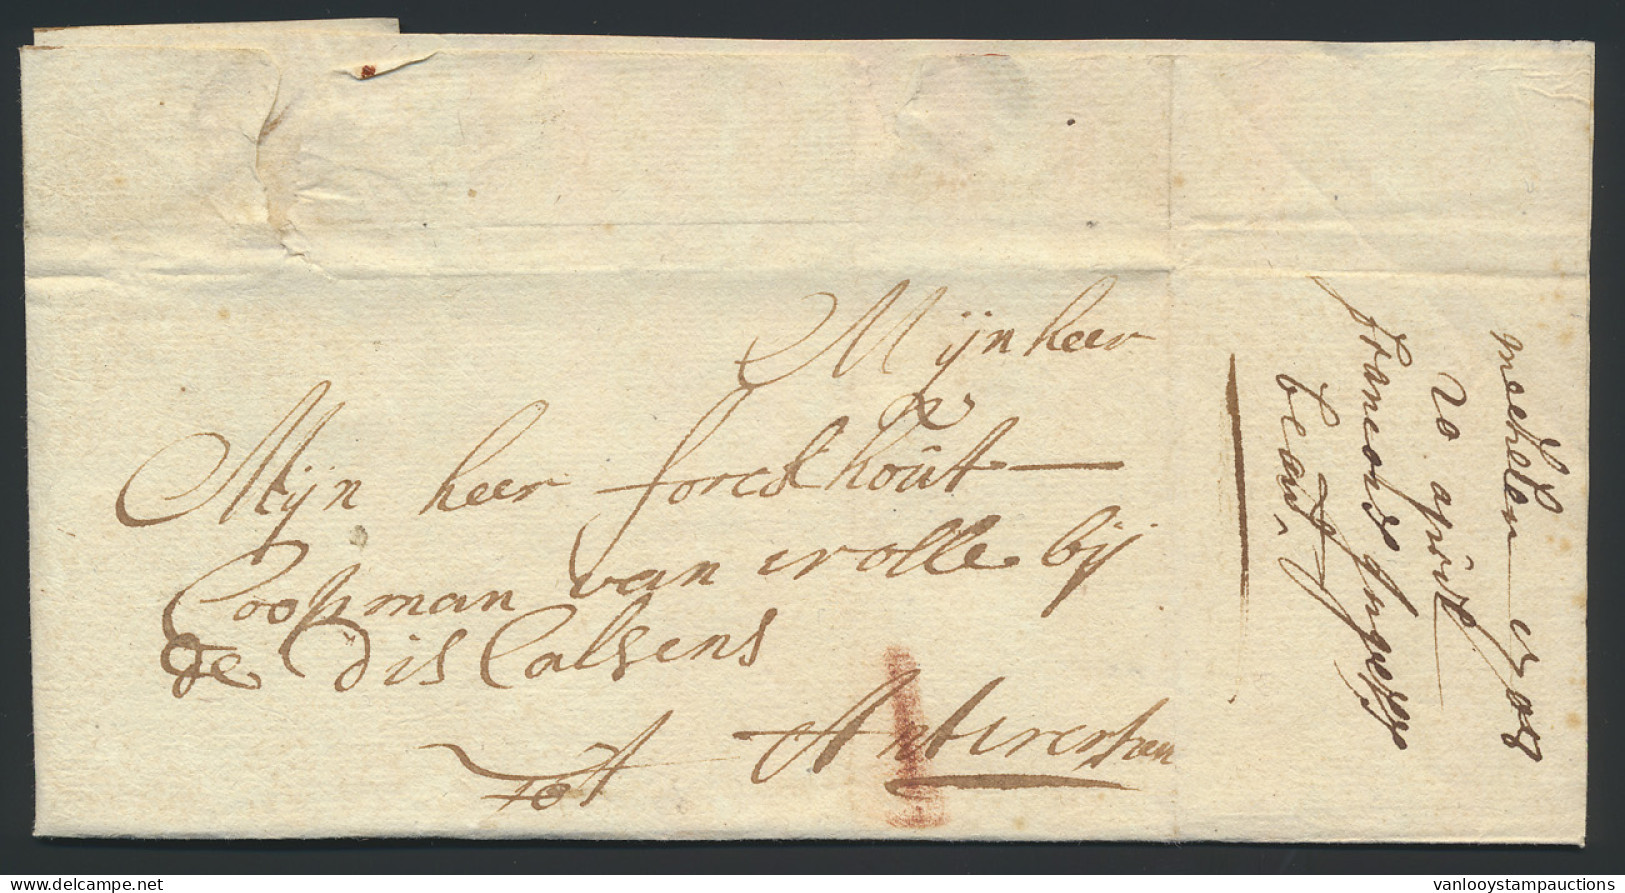 Mijnheer
Mijn heer forckhoût
Coopman van wolle bij
de dis Calsens
tot Antwerpen
mechelen 1708
20 april
beant.
www.delcampe.net
vanlooystampauctions